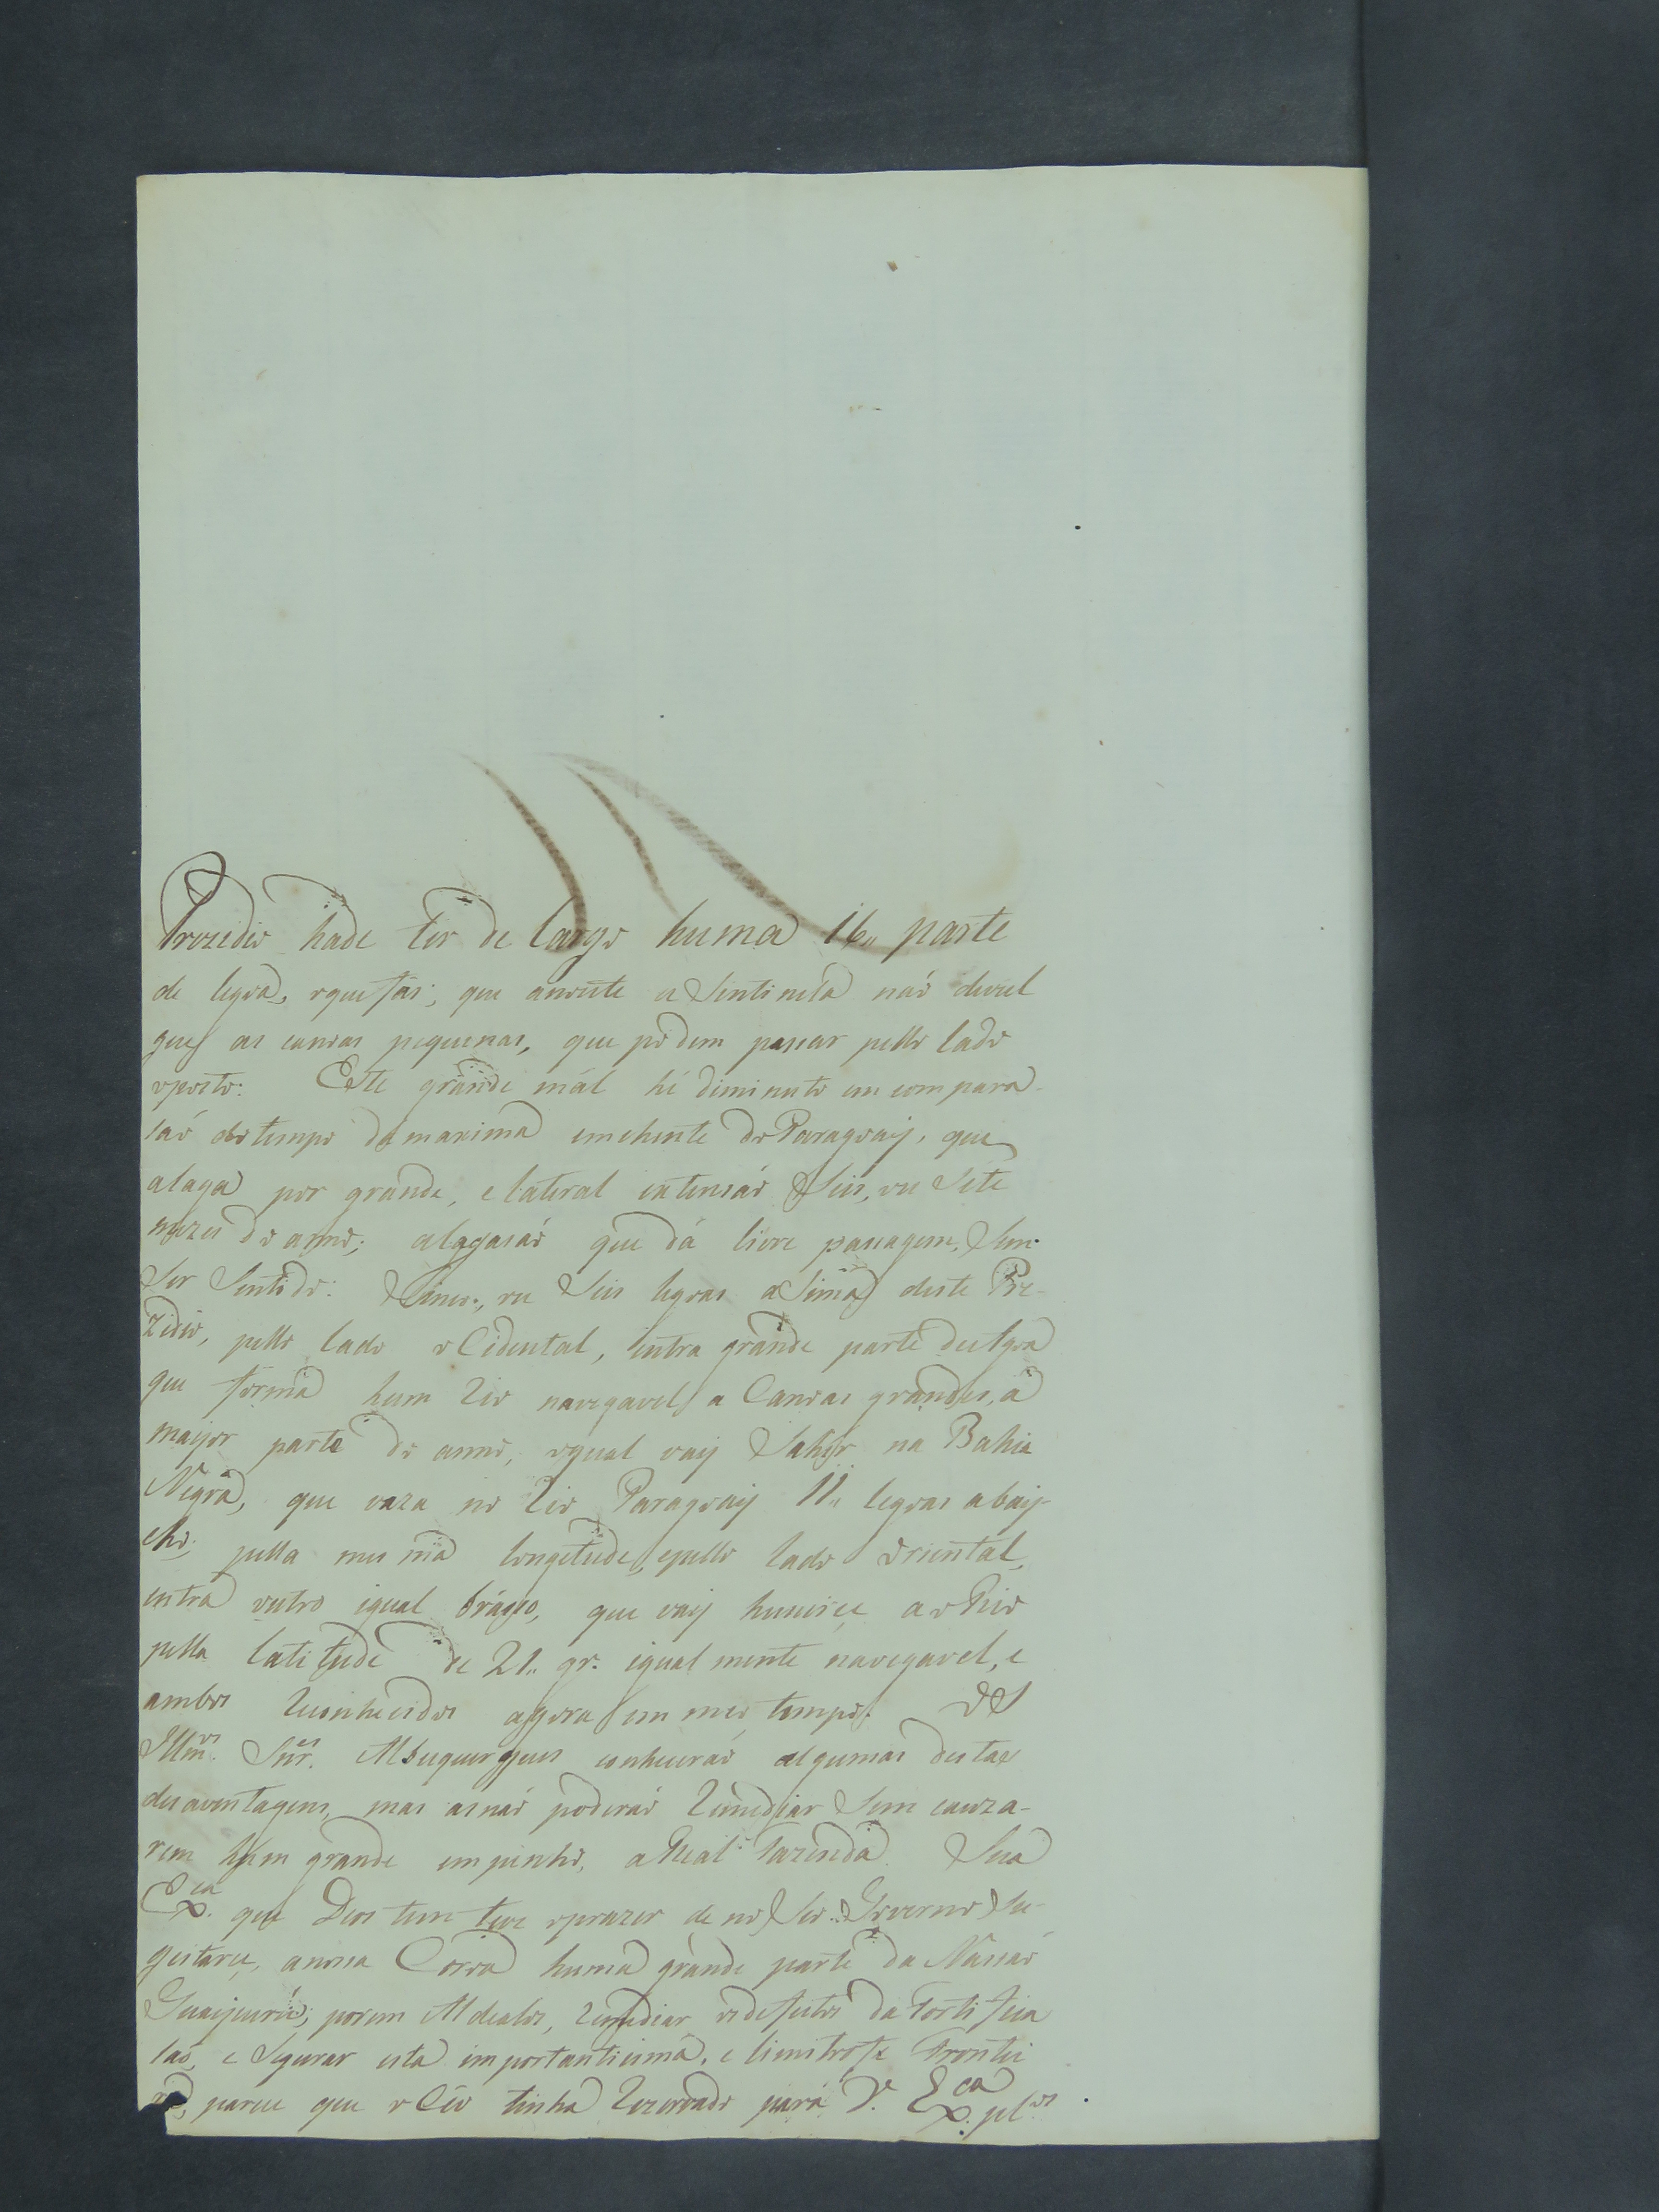 Prezidio hade ter de largo huma 16,, parte
de legoa, oque fás; que anoute a Sentinela náo devul
gue as canoas pequenas, que podem passar pello lado
oposto: Este grande mál hé diminuto em compara-
sáo do tempo da maxima emchente do Paragoaÿ, que
alaga por grande, e lateral extensáo Seis, ou Sete
mezes do anno; alagasáo que dá livre passagem, Sem
Ser Sentido: Sinco, ou Seis legoas aSima deste Pre-
zidio, pello lado oCidental, entra grande parte de Agoa
que forma hum Rio navegavel a Canoas grandes, a
mayor parte do anno, oqual vaÿ Sahir na Bahia
Negra, que vaza no Rio Paragoaÿ 11,, legoas abaÿ-
cho; pella mesma longetude, epello lado Oriental,
entra outro igual bráço, que vaÿ hunirçe ao Rio
pella latitude de 21,, gr. igual mente navegavel, e
ambos Reconhecidos agora em meo tempo. OS
Illmos. Snres. Albuquerques conheceráo algumas destas
desaventagens, mas asnáo poderáo Remediar Sem cauza-
rem hum grande empenho, a Real Fazenda. Sua
Exca. que Deos tem teve oprazer de no Seo Governo Su-
geitarçe, anossa Coroa huma grande parte da Nassáo
Guaÿcurú; porem Aldealos, Remediar os defeitos da Fortifica
sáo, e Segurar esta importantissima, e limitrofe Frontei
ra, parece que o Céo tinha Rezervado para V. Exca. pelos